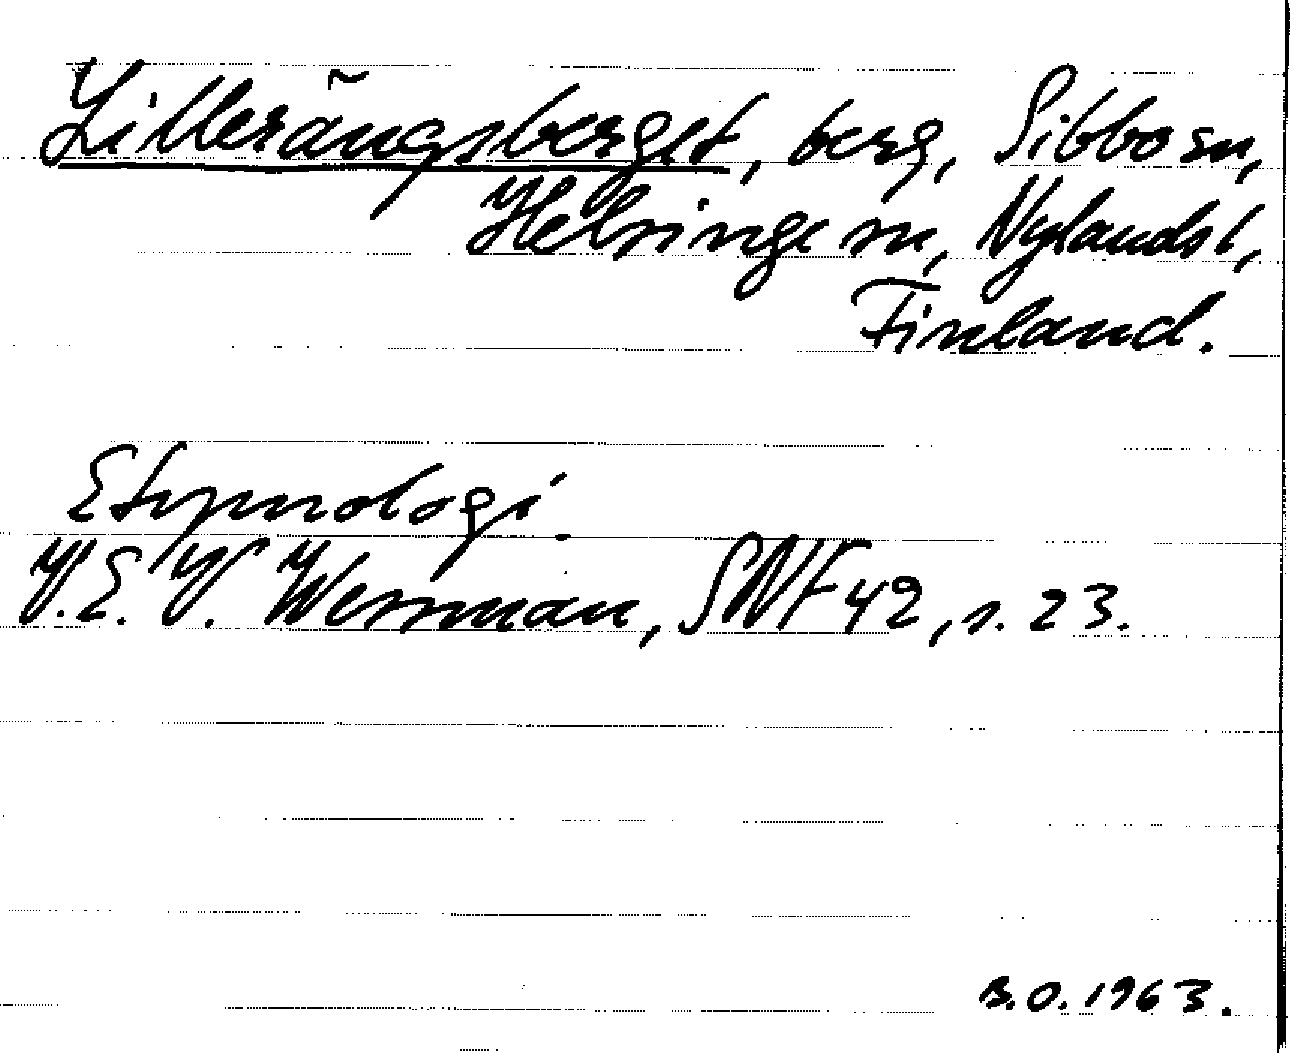 Lillerängsberget, berg, Sibbo sn,
Helsinge sn, Nylands l,
Finland.
Etymologi.
V. E. V. Wessman, SNF 42, s. 23.
B.O. 1963.